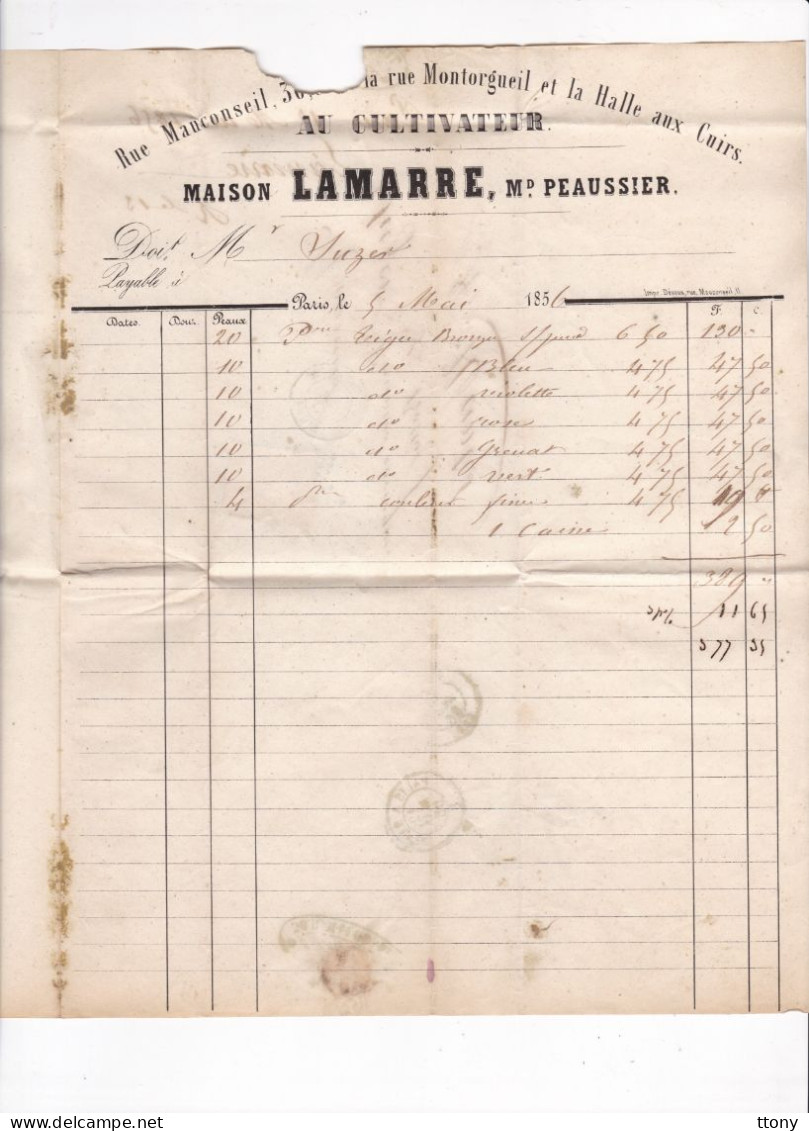 Rue Mauconseil, 36, la rue Montorgueil et la Halle aux Cuirs.
AU CULTIVATEUR.
MAISON LAMARRE, MD PEAUSSIER.
Doit Mr Suzer
Payable à
Impr. Désoye, rue Mauconseil, 11.
Paris, le 5 Mai 1856
Dates. Douz. Peaux F. C.
20 Bronze 6 50 130 "
10 do Bleu 4 75 47 50
10 do violette 4 75 47 50
10 do rose 4 75 47 50
10 do Grenat 4 75 47 50
10 do vert 4 75 47 50
4 do couleur fine 4 75 19 "
1 Caisse 2 50
389 "
3 p% 11 65
377 35
ttony